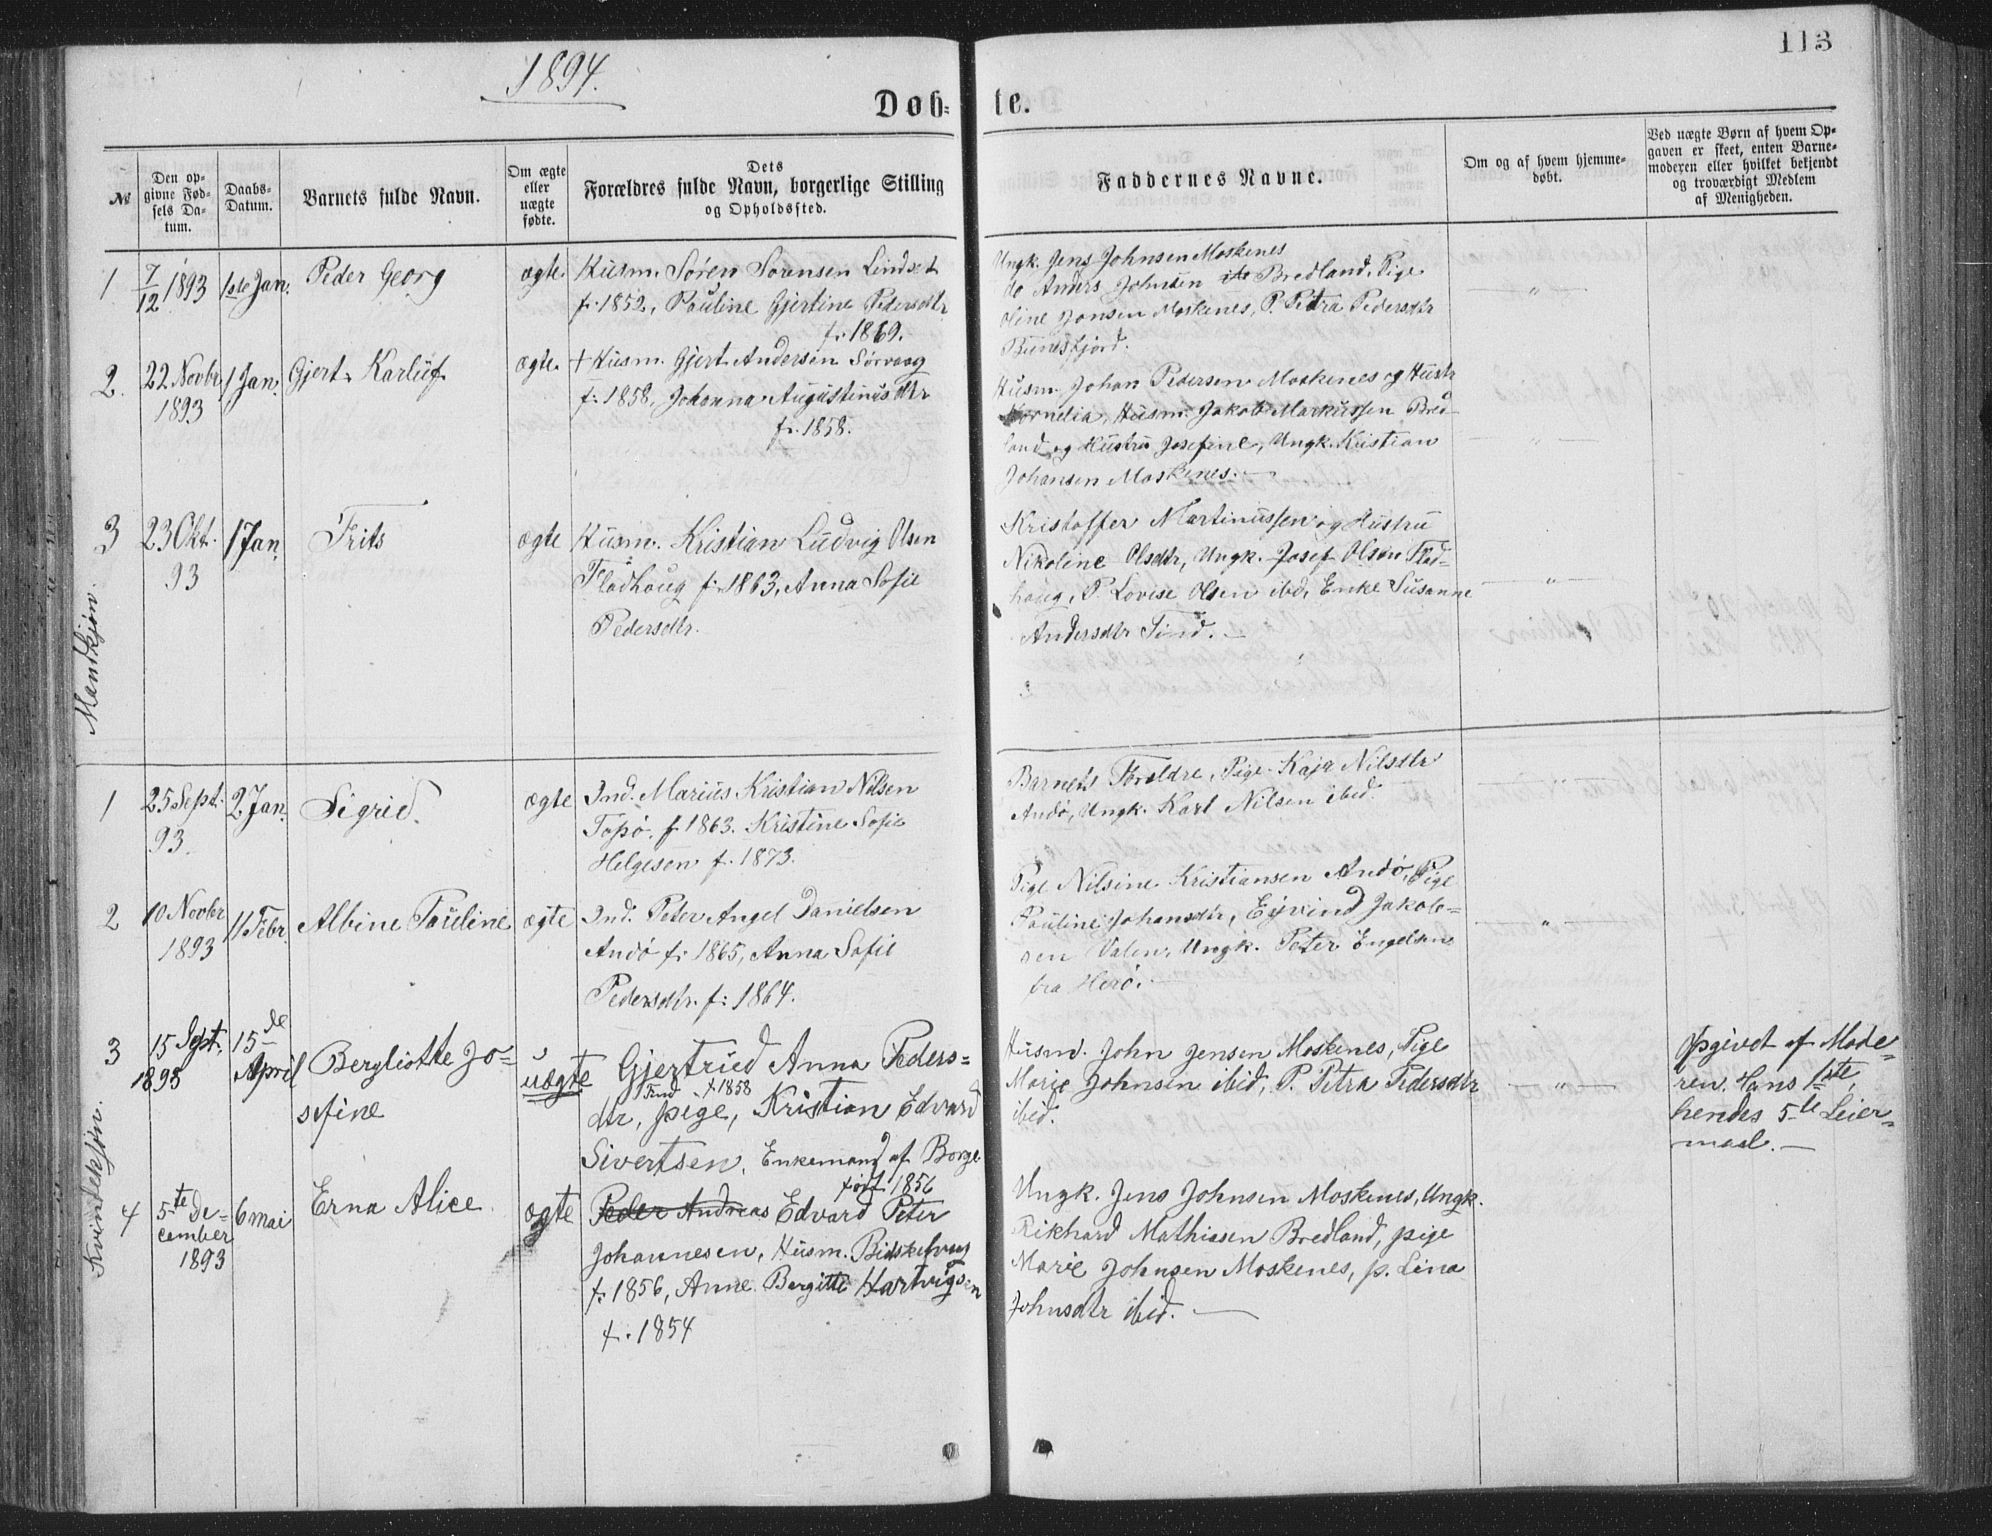 113
1894.
Døb-
te.
№
Den op-
givne Fød-
sels Da-
tum.
Daabs-
Datum.
Barnets fulde Navn.
Om ægte
eller
uægte
fødte.
Dets
Forældres fulde Navn, borgerlige Stilling
og Opholdssted.
Faddernes Navne.
Om og af hvem hjemme-
døbt.
Ved uægte Børn af hvem Op-
gaven er skeet, enten Barne-
moderen eller hvilket bekjendt
og troværdigt Medlem
af Menigheden.
Mandkjøn.
1
7/12 1893
1ste Jan.
Peder Georg
ægte.
Husm. Søren Sorensen Lindset
f. 1852, Pauline Gjertine Pedersdtr
f. 1869.
Ungk. Jens Johnsen Moskenes
do Anders Johnsen Bredland, Pige
Oline Jonsen Moskenes, P. Petra Pedersdtr
Bunesfjord.
— " —
2.
22 Novbr
1893
1 Jan.
Gjert Karluf
ægte.
+ Husm. Gjert Andersen Sørvaag
f: 1858, Johanna Augustinusdtr
f. 1858.
Husm. Johan Pedersen Moskenes og Hustr
Kornelia, Husm. Jakob Markussen Bred-
land og Hustru Josefine, Ungk. Kristian
Johansen Moskenes. —
— " —
3
23 Okt.
93
1 Jan.
Frits
ægte
Husm. Kristian Ludvig Olsen
Fladhaug f. 1863, Anna Sofie
Pedersdtr.
Kristoffer Martinussen og Hustru
Nikoline Olsdtr, Ungk. Josef Olsen Flad-
haug, P. Lovise Olsen ibd, Enke Susanne
Andersdtr Tind. —
— " —
Kvindekjøn.
1
25 Sept.
93.
2 Jan.
Sigrid.
ægte
Ind. Marius Kristian Nilsen
Topø. f. 1863. Kristine Sofie
Helgesen f. 1873.
Barnets Foreldre, Pige Kaja Nilsdtr
Andø, Ungk. Karl Nilsen ibid.
— " —
2
10 Novbr
1893
11 Febr.
Albine Pauline
ægte
Ind. Peter Angel Danielsen
Andø f: 1865, Anna Sofie
Pedersdtr. f: 1864.
Pige Nilsine Kristiansen Andø, Pige
Pauline Johansdtr, Eivind Jakob-
sen Valen, Ungk. Peter Engelsen
fra Herø. —
— " —
3
15 Sept.
1893
15de
April
Bergliotte Jo-
sefine
uægte
Gjertrud Anna Peders-
Tind f. 1858
dtr, pige, Kristian Edvard
Sivertsen, Enkemand af Borge
født 1856
Husmd. John Jensen Moskenes, Pige
Marie Johnsen ibid, P. Petra Pedersdtr
ibid.
— " —
Opgivet af Mode-
ren. Hans 1ste,
hendes 5te Leier-
maal. —
4
5te De-
cember
1893
6 mai
Erna Alice.
ægte
Peder Andreas Edvard Peter
Johannesen, Husm.
f. 1856, Anne Bergitte Hartvigsen
f. 1854
Ungk. Jens Johnsen Moskenes, Ungk.
Rikhard Mathiasen Bredland, pige
Marie Johnsen Moskenes, p. Lina
Johnsdtr ibid. —